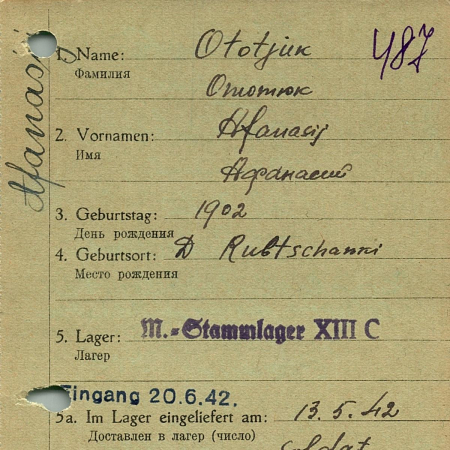 1. Name: Ototjuk 487
Фамилия
Ототюк
2. Vornamen: Afanasij
Имя
Афанасий
Afanasij
3. Geburtstag: 1902
День рождения
4. Geburtsort: D Rubtschanki
Место рождения
5. Lager: M.=Stammlager XIII C
Лагер
Eingang 20.6.42.
5a. Im Lager eingeliefert am: 13.5.42
Доставлен в лагер (число)
Soldat